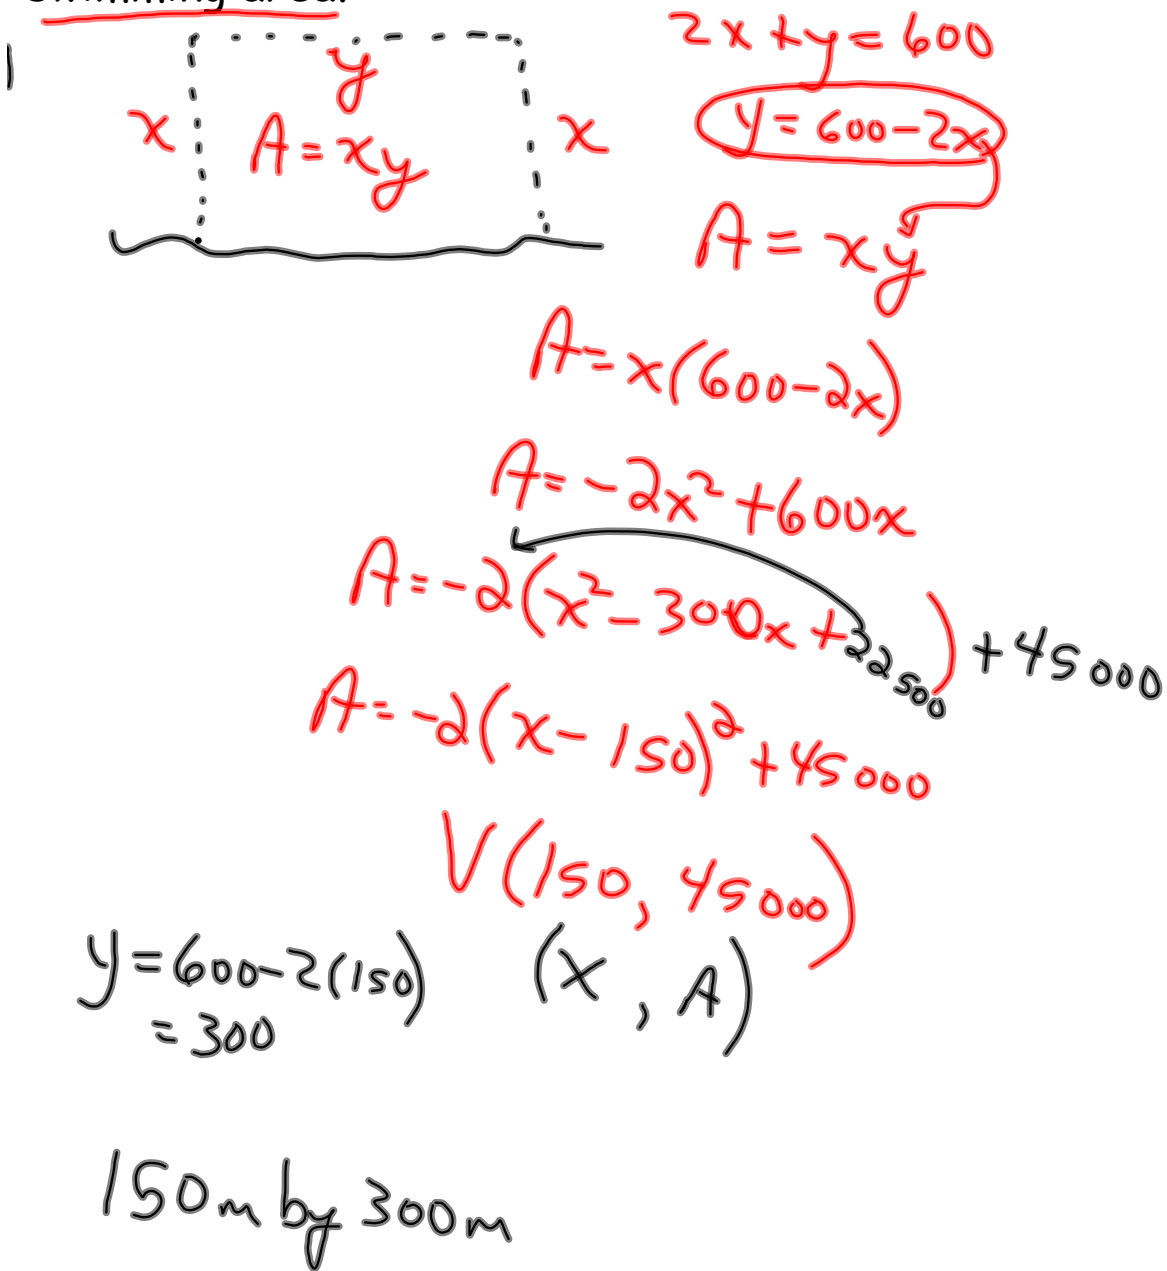 swimming area.
2x + y = 600
y
x
A = xy
x
y = 600 - 2x
A = xy
A = x(600 - 2x)
A = -2x² + 600x
A = -2(x² - 300x + 22500) + 45000
A = -2(x - 150)² + 45000
V(150, 45000)
y = 600 - 2(150)
(x, A)
= 300
150m by 300m